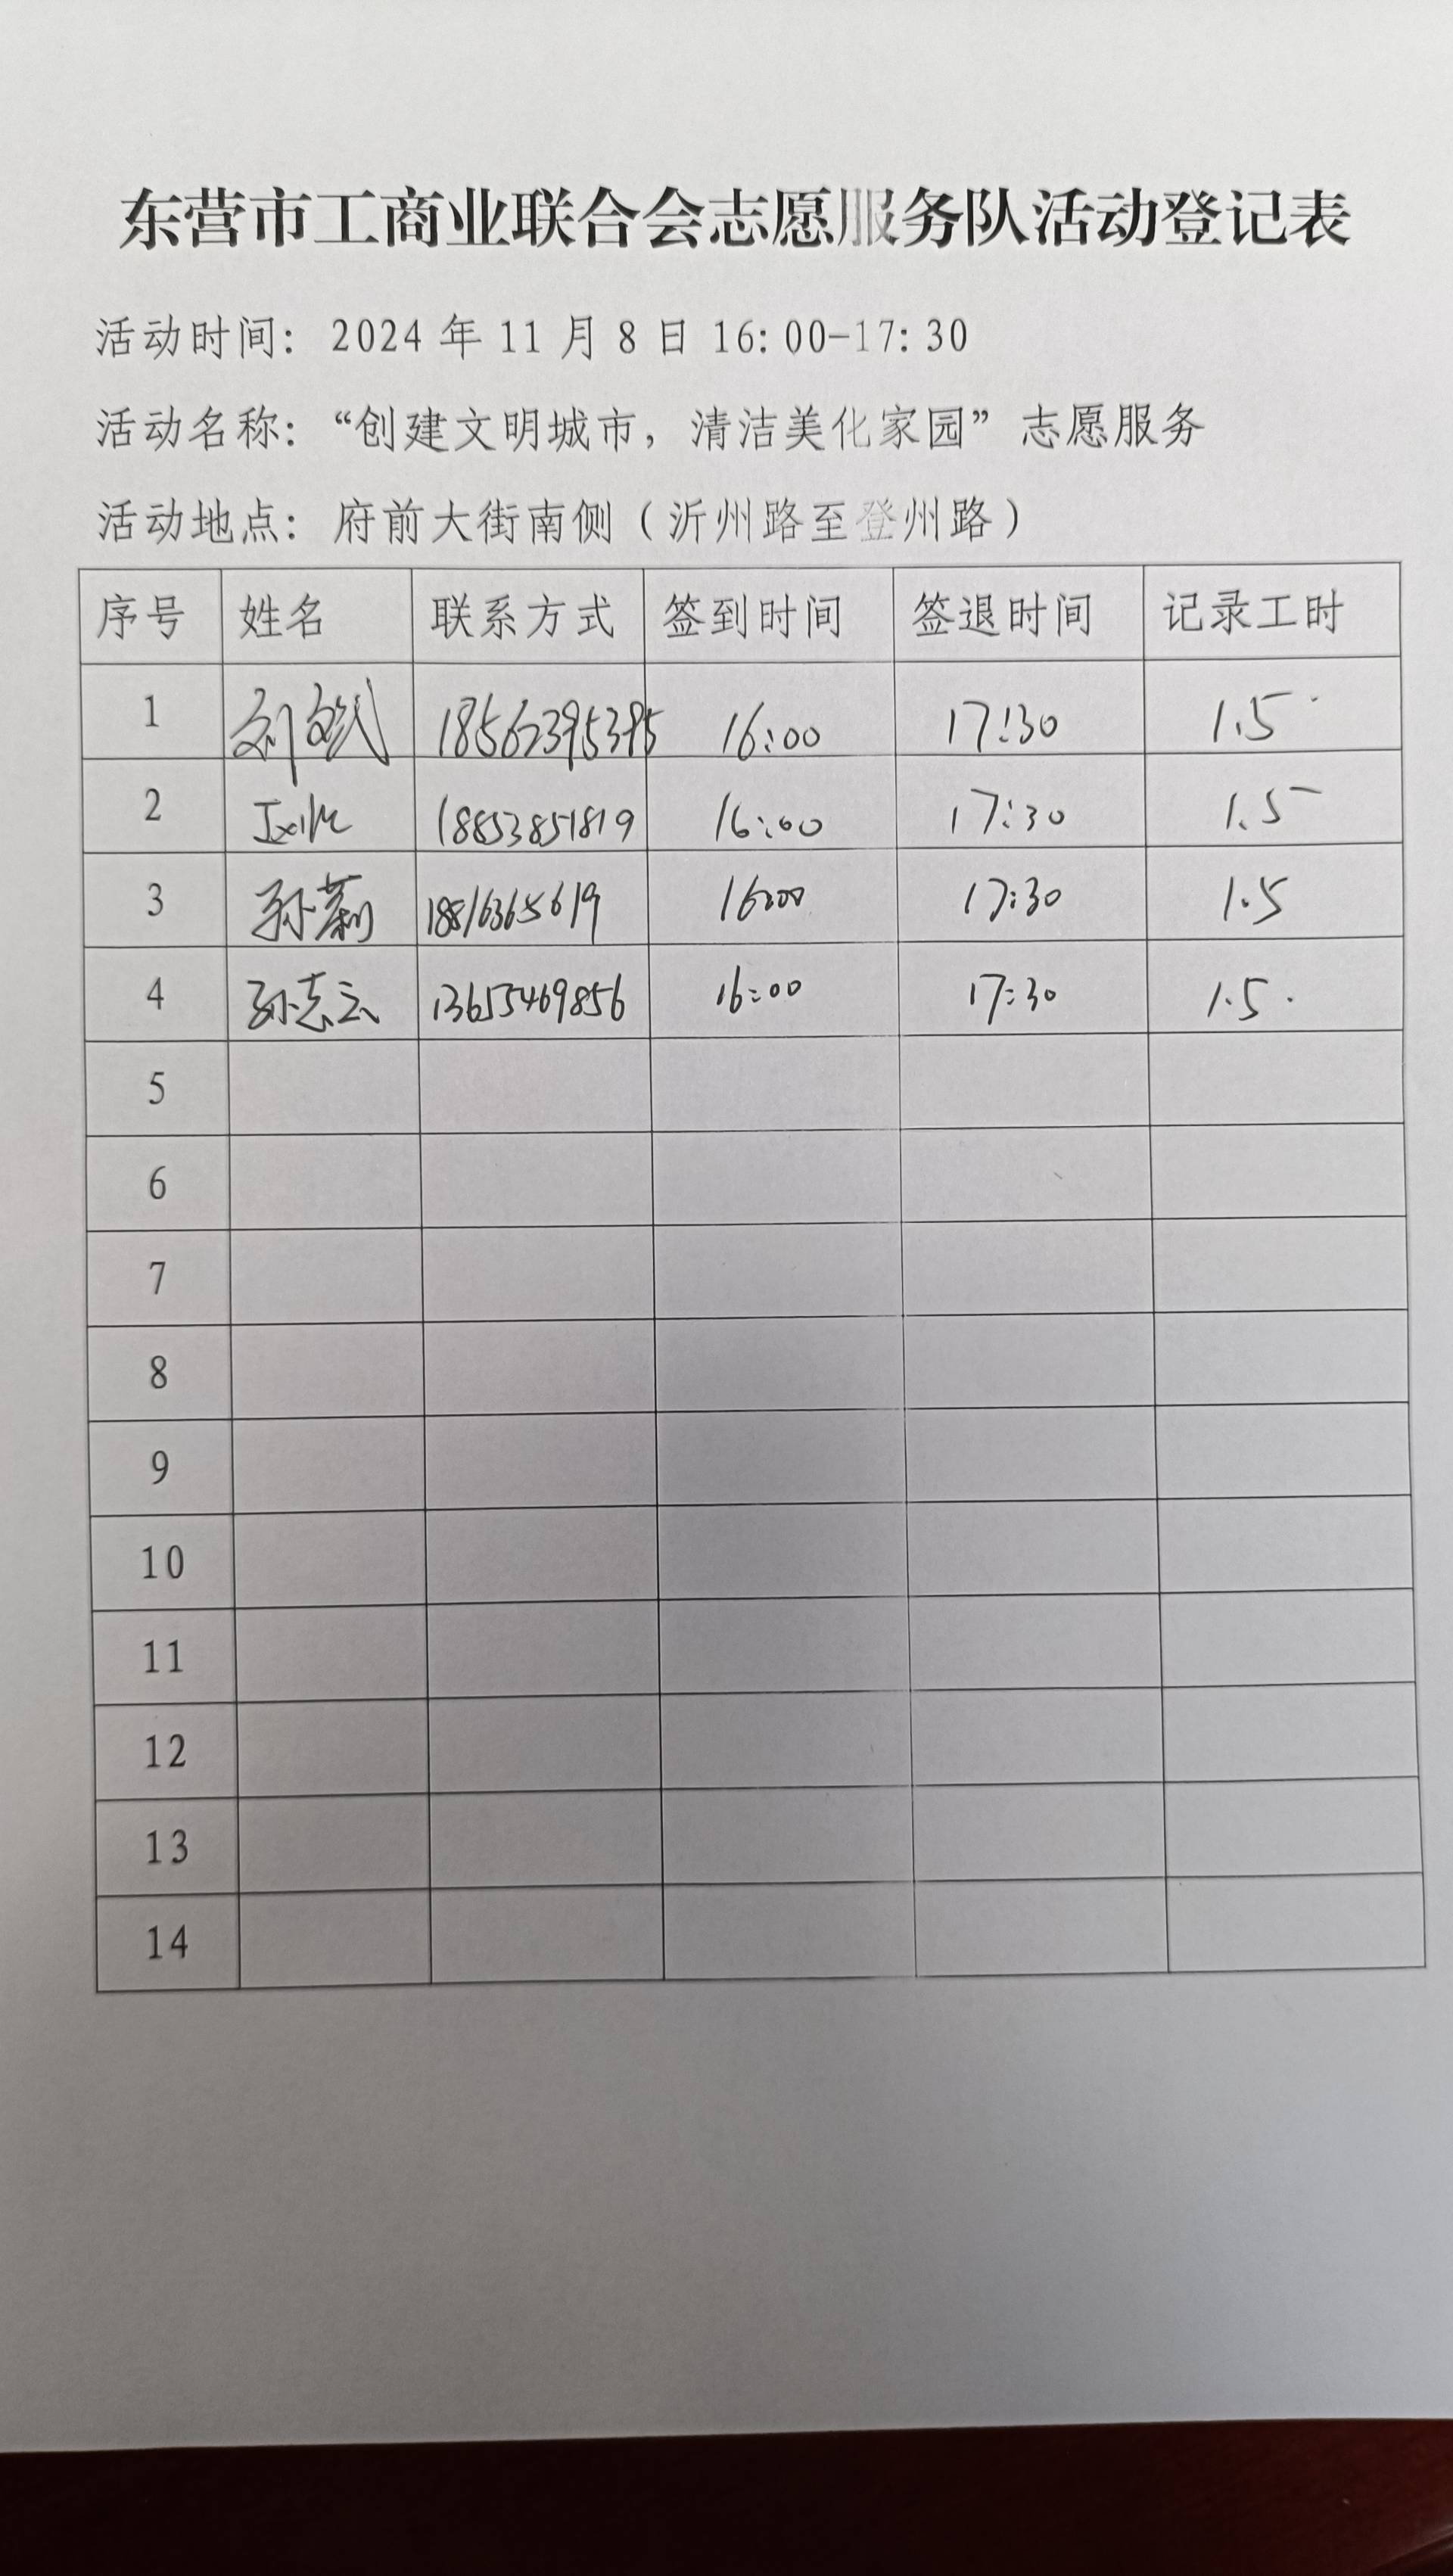 东营市工商业联合会志愿服务队活动登记表
活动时间：2024 年 11 月 8 日 16：00-17：30
活动名称：“创建文明城市，清洁美化家园”志愿服务
活动地点：府前大街南侧（沂州路至登州路）
序号 姓名 联系方式 签到时间 签退时间 记录工时
1 刘 16:00 17:30 1.5
2 18853851819 16:00 17:30 1.5
3 孙 18816365619 16:00 17:30 1.5
4 孙志云 13655469856 16:00 17:30 1.5
5
6
7
8
9
10
11
12
13
14